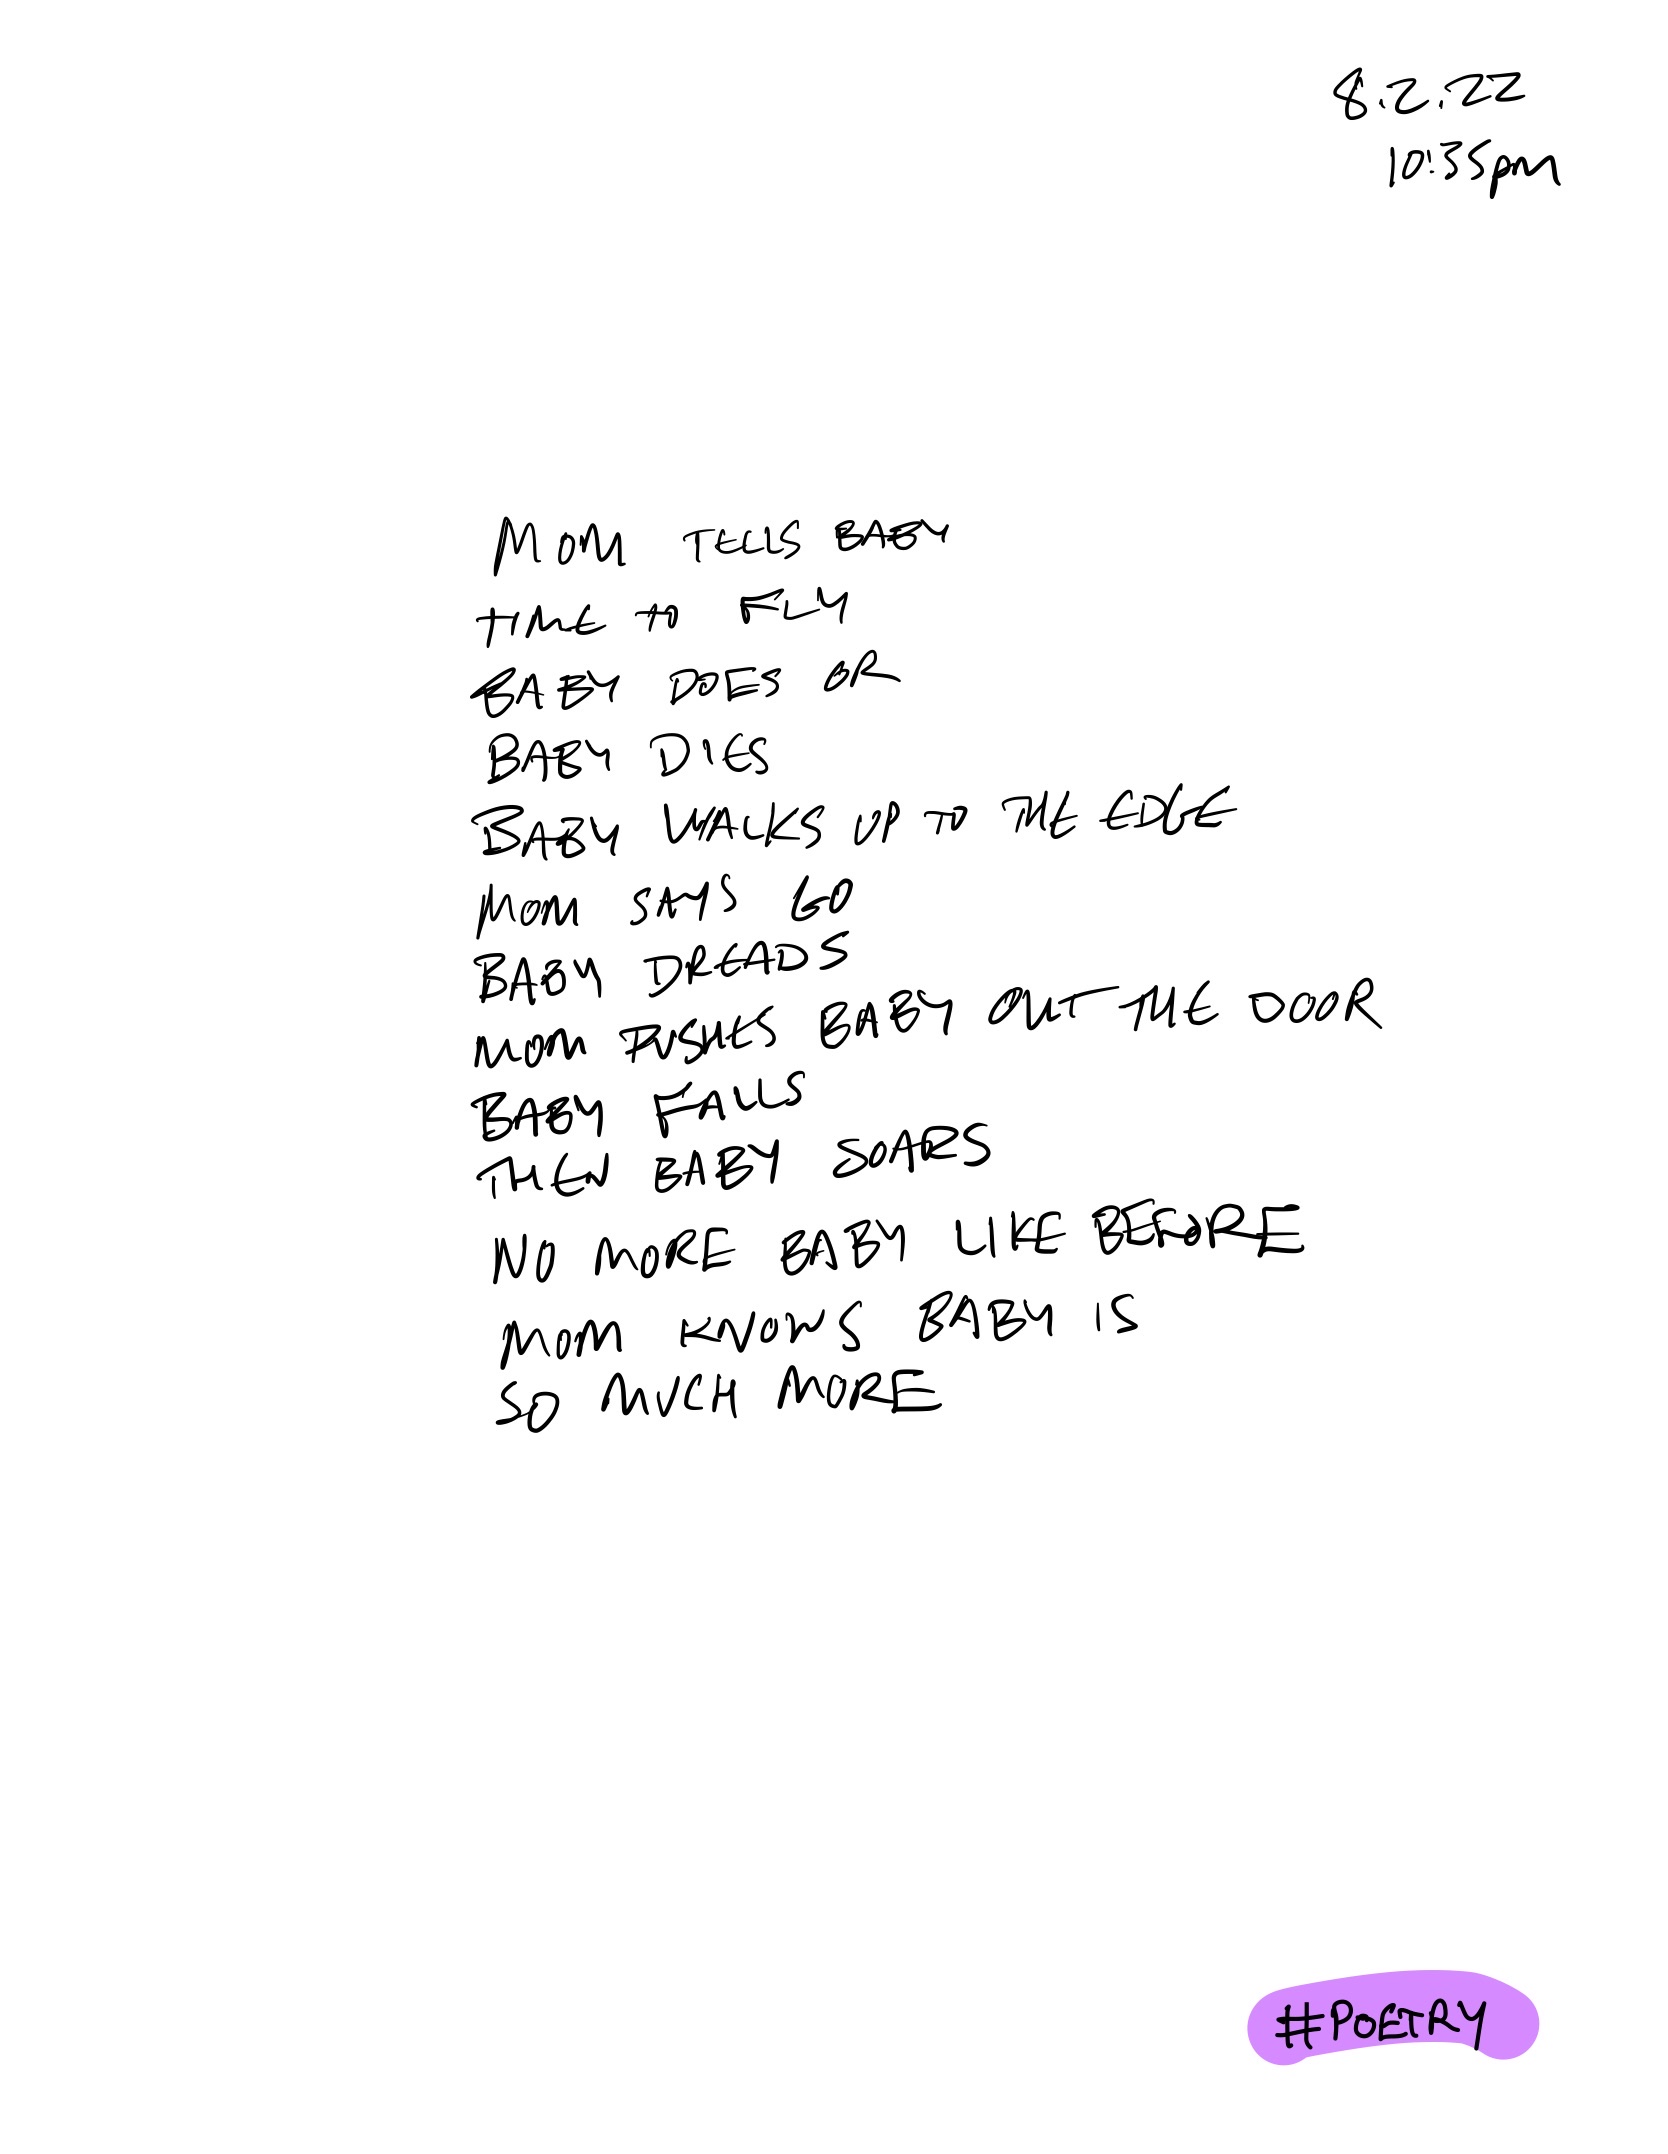 8.2.22
10:35pm
MOM TELLS BABY
TIME TO FLY
BABY DOES OR
BABY DIES
BABY WALKS UP TO THE EDGE
MOM SAYS GO
BABY DREADS
MOM PUSHES BABY OUT THE DOOR
BABY FALLS
THEN BABY SOARS
NO MORE BABY LIKE BEFORE
MOM KNOWS BABY IS
SO MUCH MORE
#POETRY